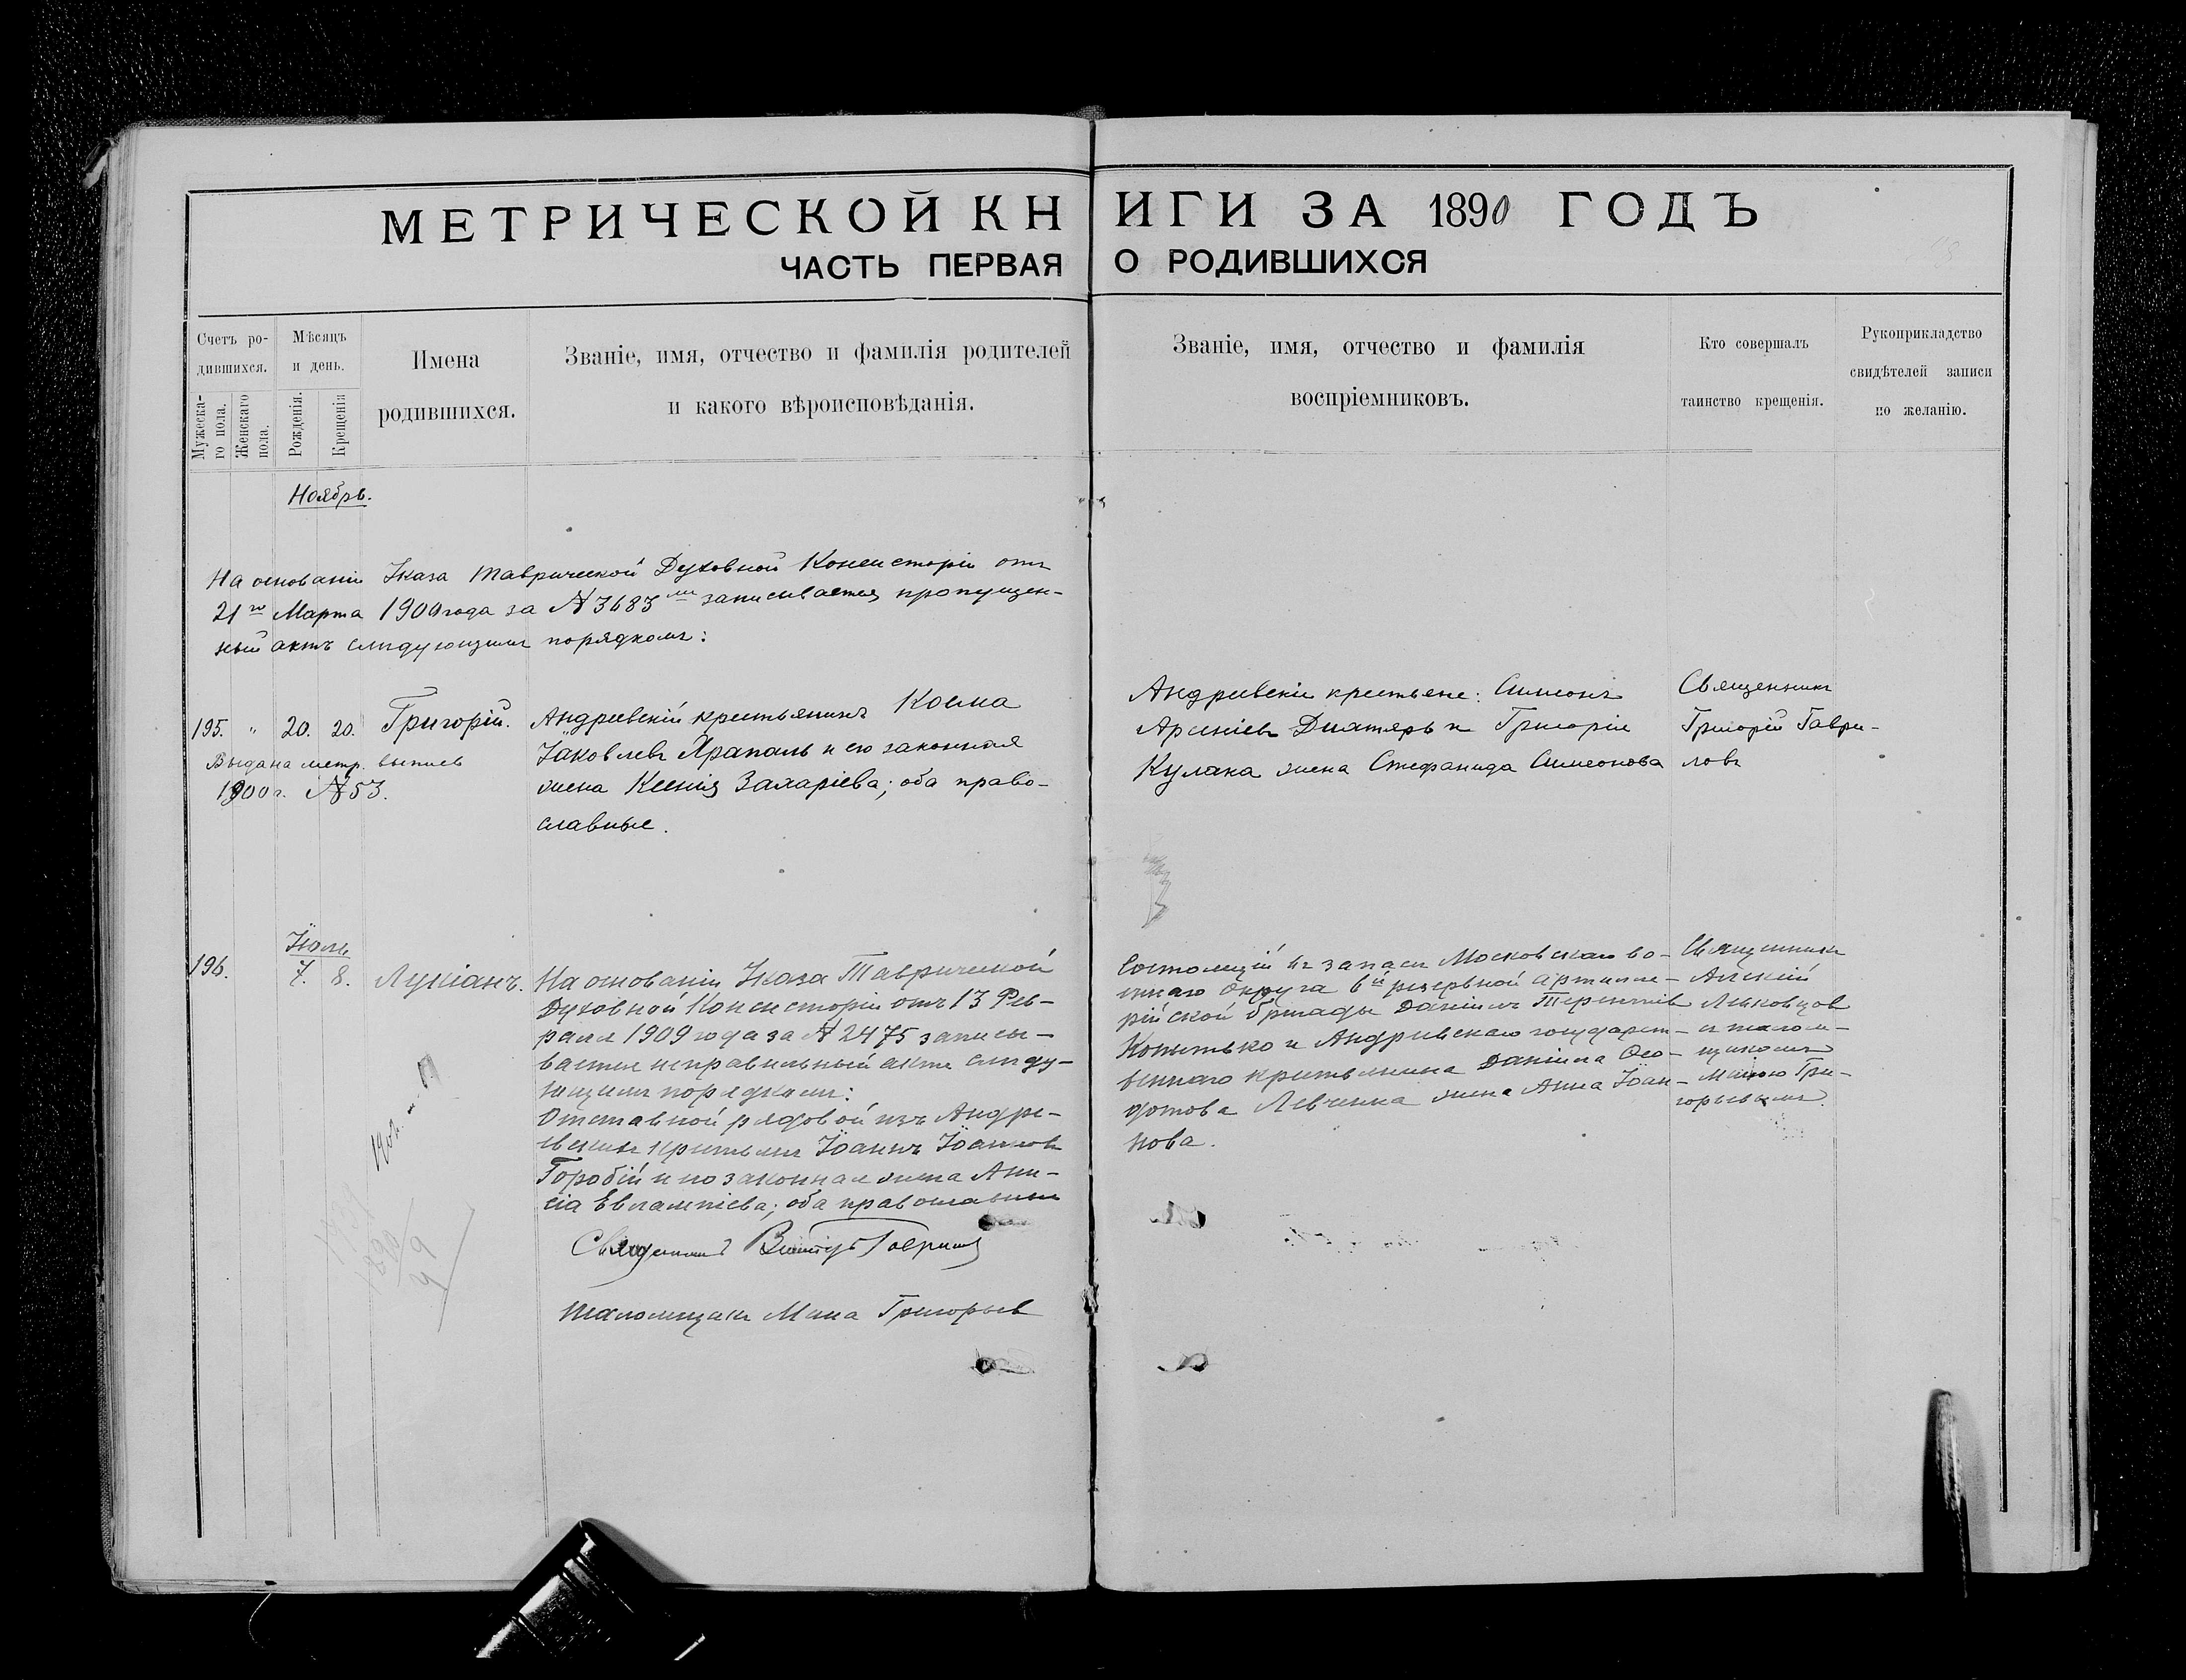 МЕТРИЧЕСКОЙ КНИГИ ЗА 1890 ГОДЪ
ЧАСТЬ ПЕРВАЯ О РОДИВШИХСЯ
Счетъ ро-
дившихся.
Мужеска-
го пола.
Женскаго
пола.
Мѣсяцъ
и день.
Рожденія.
Крещенія
Имена
родившихся.
Званіе, имя, отчество и фамилія родителей
и какого вѣроисповѣданія.
Званіе, имя, отчество и фамилія
воспріемниковъ.
Кто совершалъ
таинство крещенія.
Рукоприкладство
свидѣтелей записи
по желанію.
Ноябрь.
На основаніи Указа Таврической Духовной Консисторіи отъ
21го Марта 1900 года за № 3683 записывается пропущен-
ный актъ слѣдующимъ порядкомъ:
195. " 20. 20. Григорій.
Выдана метр. выпись
1900 г. № 53.
Андреевскій крестьянинъ Косма
Іаковлевъ Арапаль и его законная
жена Ксенія Захаріева; оба право-
славные.
Андреевскіе крестьяне: Симеонъ
Арсеніевъ Дихтярь и Григорія
Кулака жена Стефанида Симеонова
Священникъ
Григорій Гаври-
ловъ
Іюль
196. 7. 8. Лукіанъ.
На основаніи Указа Таврической
Духовной Консисторіи отъ 13 Фев-
раля 1909 года за № 2475 записы-
вается неправильный актъ слѣду-
ющимъ порядкомъ:
Отставной рядовой изъ Андре-
евскихъ крестьянъ Іоаннъ Іоанновъ
Горобій и его законная жена Ани-
сія Евлампіева; оба православные
Священникъ Викторъ Гавриловъ
Псаломщикъ Мина Григорьевъ
Состоящій въ запасѣ Московскаго во-
еннаго округа 6й резервной Артилле-
рійской бригады Даніилъ Терентіевъ
Копытько и Андреевскаго государст-
веннаго крестьянина Даніила Ѳео-
дотова Левченка жена Анна Іоан-
нова.
Священникъ
Алексій
Лековцов
съ псалом-
щикомъ
Миною Гри-
горьевымъ.